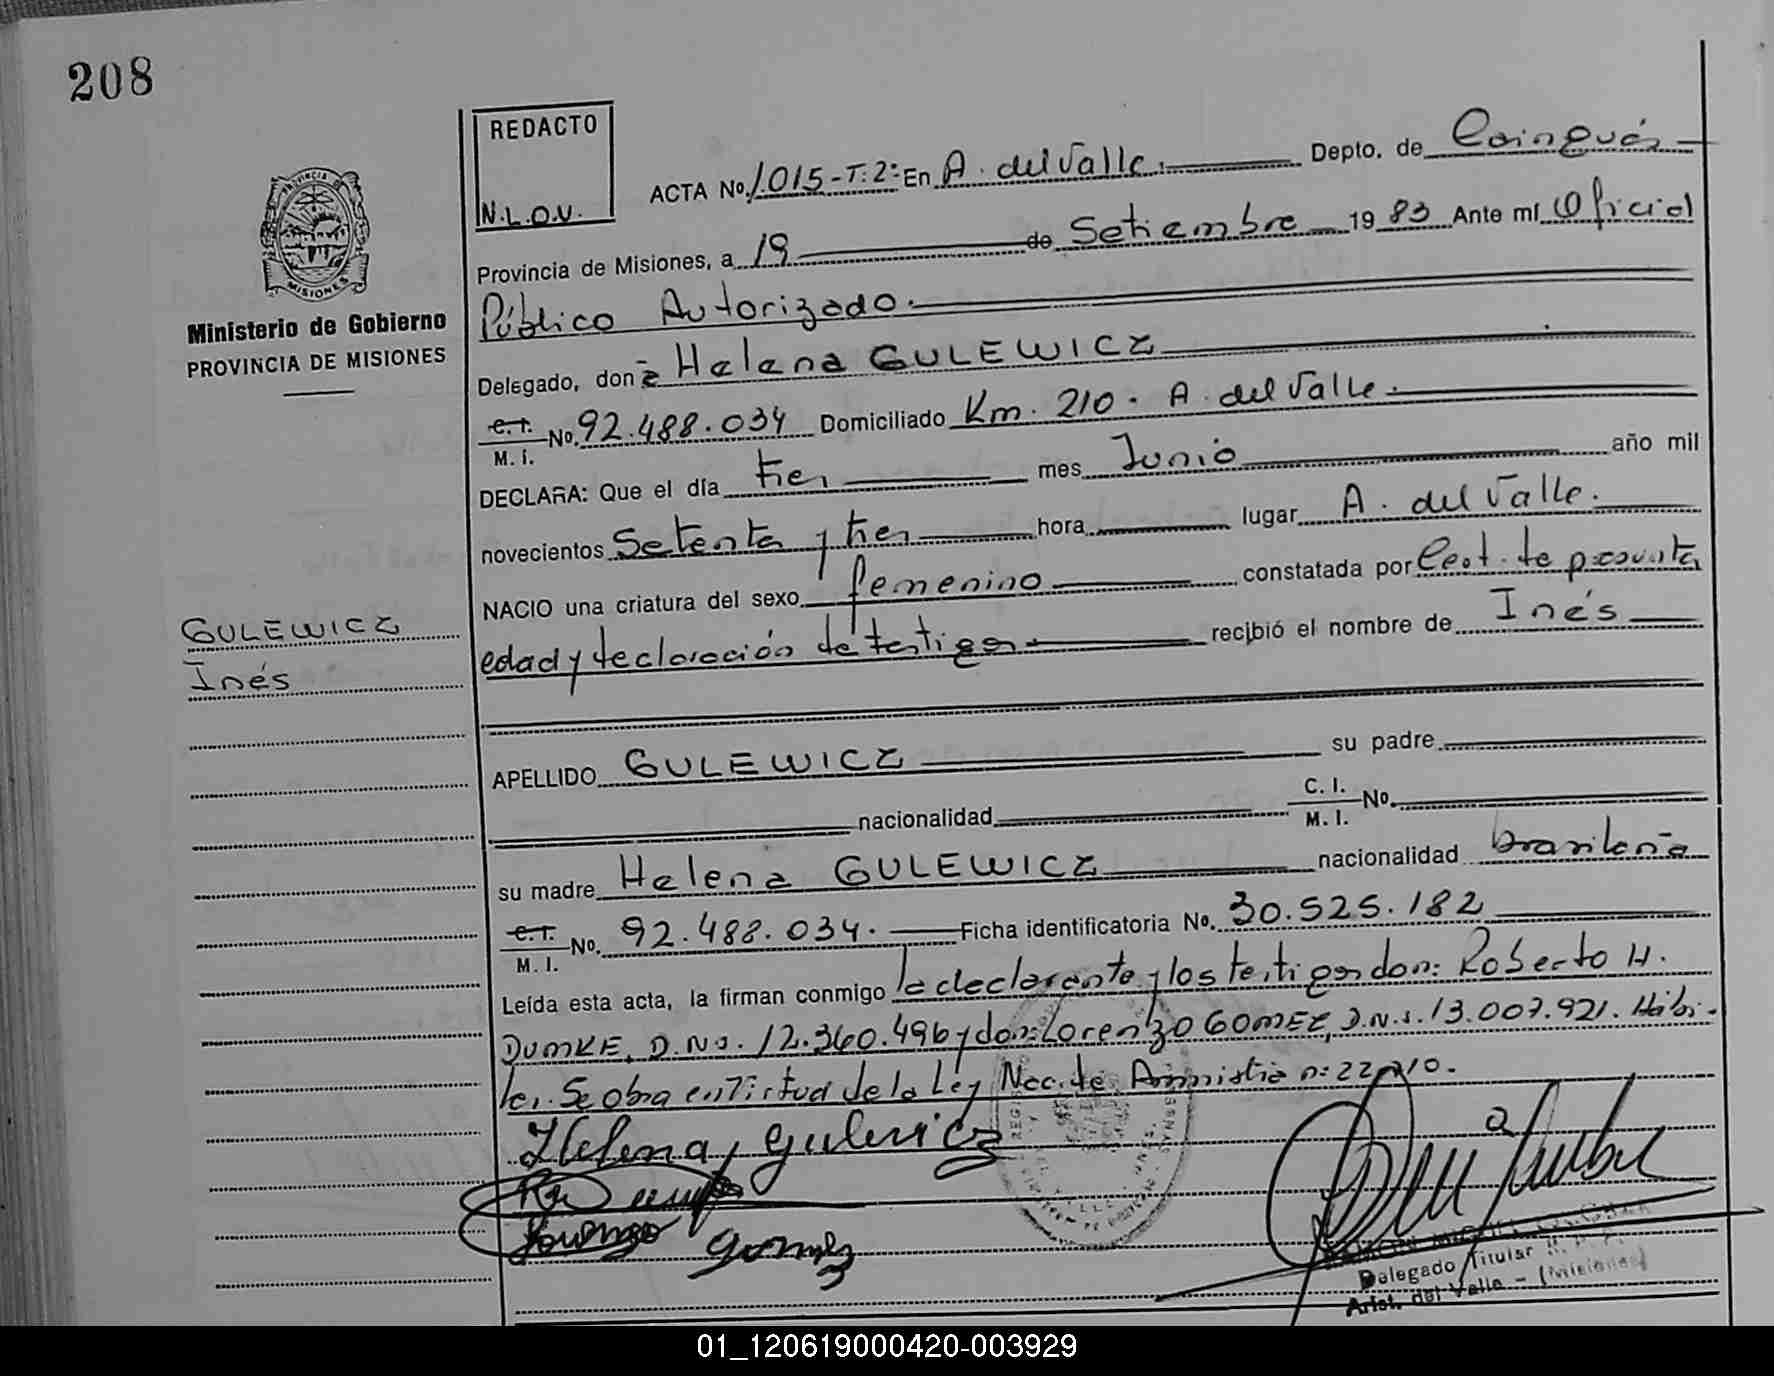 208
REDACTO
N.L.O.V.
PROVINCIA DE
MISIONES
Ministerio de Gobierno
PROVINCIA DE MISIONES
GULEWICZ
Inés
ACTA No. 1.015-T:2: En A. del Valle. Depto. de Cainguás
Provincia de Misiones, a 19 de Setiembre 1983 Ante mí Oficial
Público Autorizado.
Delegado, don a Helena GULEWICZ
C.I. M.I. No. 92.488.034 Domiciliado Km. 210. A. del Valle.
DECLARA: Que el día tres mes Junio año mil
novecientos Setenta y tres hora lugar A. del Valle.
NACIO una criatura del sexo femenino constatada por Cert. de presunta
edad y declaración de testigos recibió el nombre de Inés
APELLIDO GULEWICZ su padre
nacionalidad C.I. M.I. No.
su madre Helena GULEWICZ nacionalidad brasileña
C.I. M.I. No. 92.488.034. Ficha identificatoria No. 30.525.182
Leída esta acta, la firman conmigo la declarante y los testigos don: Roberto H.
DUMKE, D.N.I. 12.360.496 y don: Lorenzo GOMEZ, D.N.I. 13.007.921. Hábi-
les. Se obra en virtud de la Ley Nac. de Amnistia n: 22.210.
Helena Gulewicz
Lorenzo Gomez
Delegado Titular R. P.
Arist. del Valle - (Misiones)
01_120619000420-003929